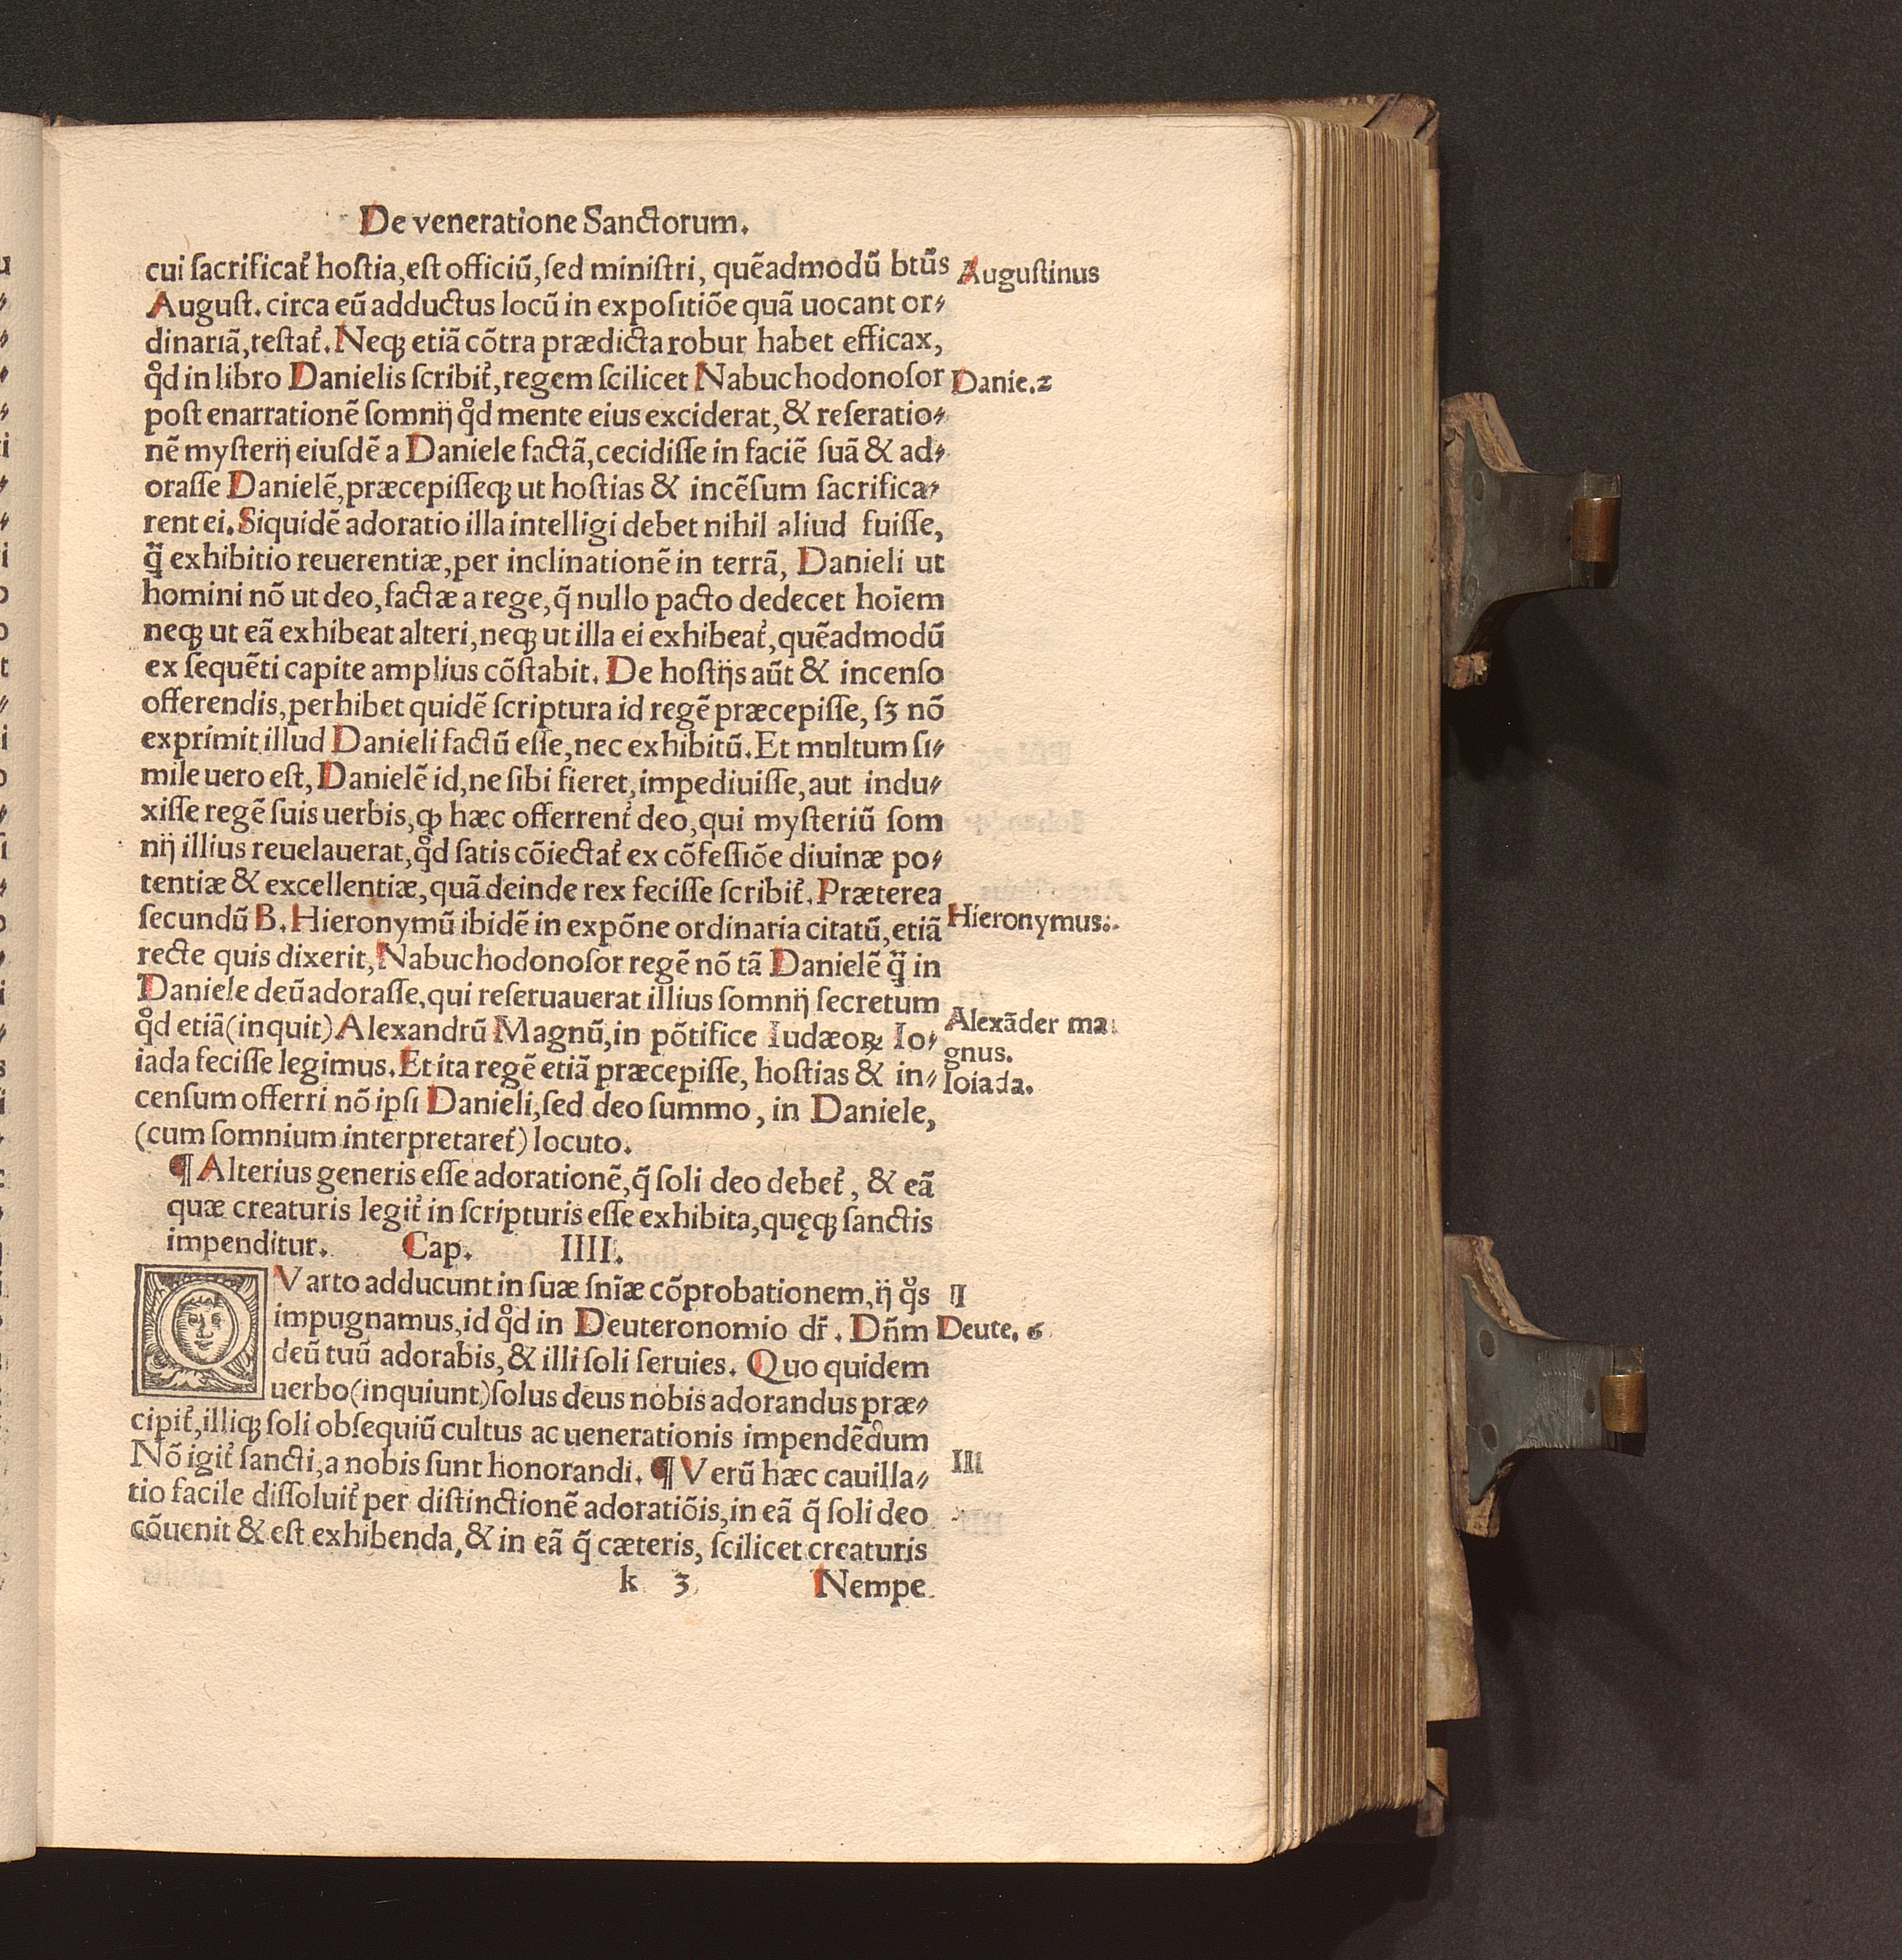 De veneratione Sanctorum.
cui ſacrificať hoſtia, eſt officiũ, ſed miniſtri, quẽadmodũ btũs
Auguſtinus
Auguſt. circa eũ adductus locũ in expoſitiõe quã uocant or⸗
dinariã, teſtať. Neqꝫ etiã cõtra prædicta robur habet efficax,
qͦd in libro Danielis ſcribiť, regem ſcilicet Nabuchodonoſor
Danie. 2
poſt enarrationẽ ſomnij qͦd mente eius exciderat, & reſeratio⸗
nẽ myſterij eiuſdẽ a Daniele factã, cecidiſſe in faciẽ ſuã & ad⸗
oraſſe Danielẽ, præcepiſſeqꝫ ut hoſtias & incẽſum ſacrifica⸗
rent ei. Siquidẽ adoratio illa intelligi debet nihil aliud fuiſſe,
q̃̈ exhibitio reuerentiæ, per inclinationẽ in terrã, Danieli ut
homini nõ ut deo, factæ a rege, q̃ nullo pacto dedecet hoĩem
neqꝫ ut eã exhibeat alteri, neqꝫ ut illa ei exhibeať, quẽadmodũ
ex ſequẽti capite amplius cõſtabit. De hoſtijs aũt & incenſo
offerendis, perhibet quidẽ ſcriptura id regẽ præcepiſſe, ſꝫ nõ
exprimit illud Danieli factũ eſſe, nec exhibitũ. Et multum ſi⸗
mile uero eſt, Danielẽ id, ne ſibi fieret, impediuiſſe, aut indu⸗
xiſſe regẽ ſuis uerbis, ꝙ hæc offerrenť deo, qui myſteriũ ſom
nij illius reuelauerat, qͦd ſatis cõiectať ex cõfeſſiõe diuinæ po⸗
tentiæ & excellentiæ, quã deinde rex feciſſe ſcribiť. Præterea
ſecundũ B. Hieronymũ ibidẽ in expõne ordinaria citatũ, etiã
Hieronymus.
recte quis dixerit, Nabuchodonoſor regẽ nõ tã Danielẽ q̃̈ in
Daniele deũ adoraſſe, qui reſeruauerat illius ſomnij ſecretum
qͦd etiã (inquit) Alexandrũ Magnũ, in põtifice Iudæoꝝ Io⸗
Alexãder ma
gnus.
iada feciſſe legimus. Et ita regẽ etiã præcepiſſe, hoſtias & in⸗
Ioiada.
cenſum offerri nõ ipſi Danieli, ſed deo ſummo, in Daniele,
(cum ſomnium interpretareť) locuto.
¶ Alterius generis eſſe adorationẽ, q̃ ſoli deo debeť, & eã
quæ creaturis legiť in ſcripturis eſſe exhibita, quęqꝫ ſanctis
impenditur. Cap. IIII.
QVarto adducunt in ſuæ ſnĩæ cõprobationem, ij qͦs
II
impugnamus, id qͦd in Deuteronomio dr̃. Dñm
Deute. 6
deũ tuũ adorabis, & illi ſoli ſeruies. Quo quidem
uerbo (inquiunt) ſolus deus nobis adorandus præ⸗
cipiť, illiqꝫ ſoli obſequiũ cultus ac uenerationis impendẽdum
Nõ igiť ſancti, a nobis ſunt honorandi. ¶ Verũ hæc cauilla⸗
III
tio facile diſſoluiť per diſtinctionẽ adoratiõis, in eã q̃ ſoli deo
cõuenit & eſt exhibenda, & in eã q̃ cæteris, ſcilicet creaturis
k 3
Nempe